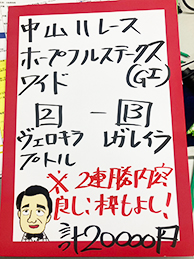 中山11レース
ホープフルステークス
ワイド (GI)
2 - 13
ヴェロキラプトル レガレイラ
※2連勝内容
良し、枠もよし!
計20000円